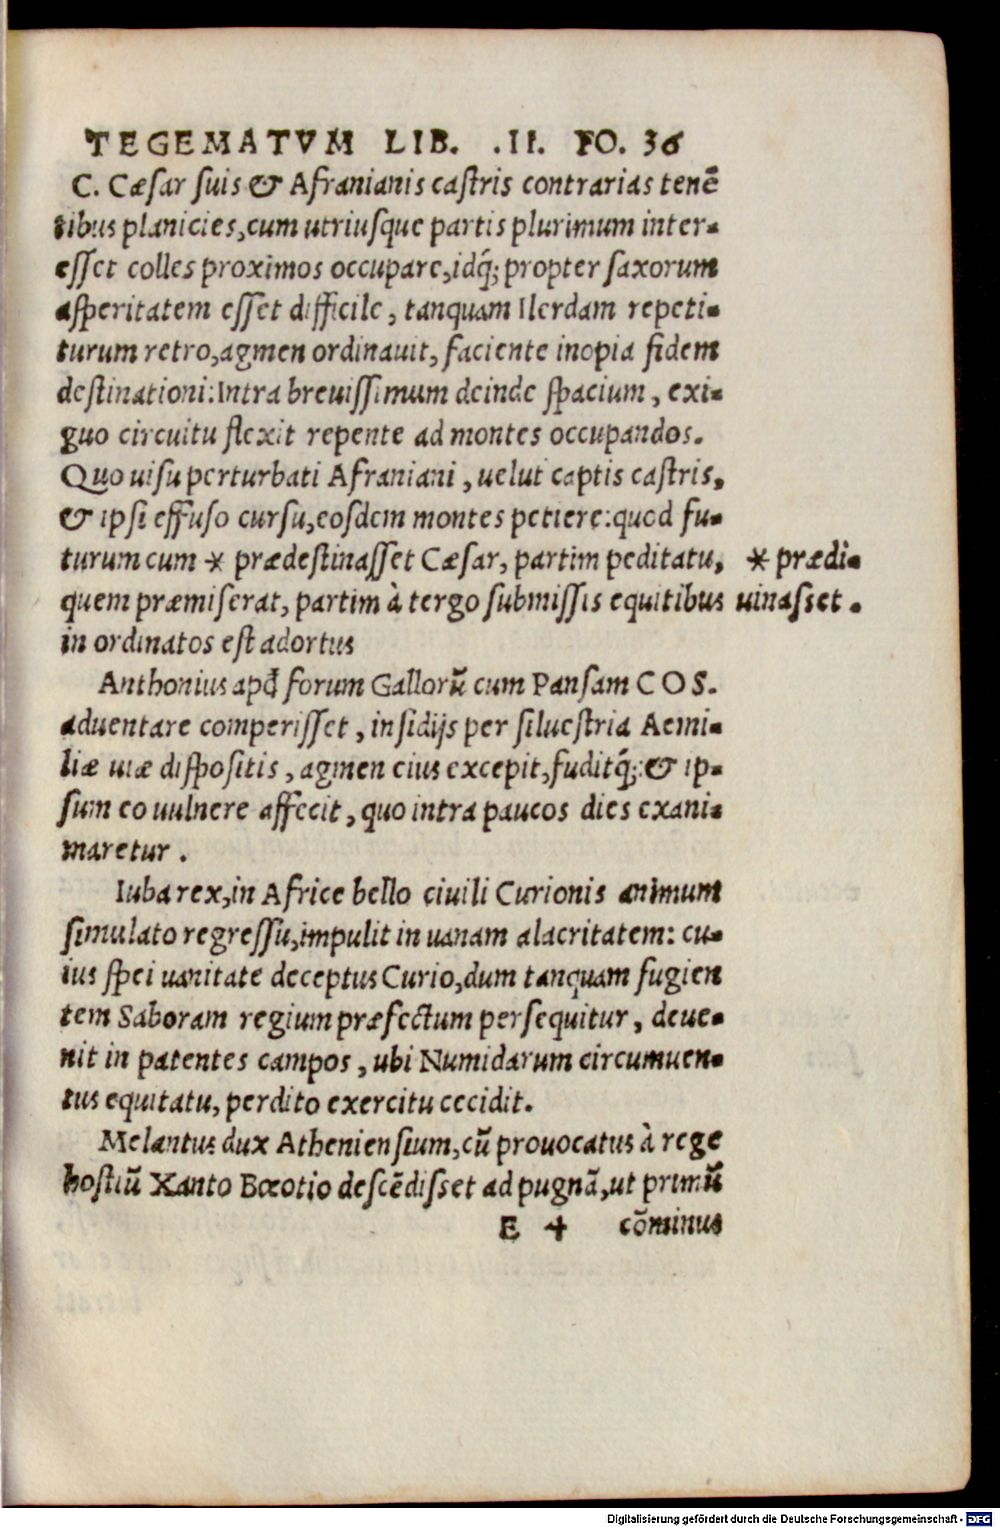 TEGEMATVM LIB. .II. FO. 36
C. Cæsar suis & Afranianis castris contrarias tenē
tibus planicies,cum utriusque partis plurimum inter-
esset colles proximos occupare,idq́; propter saxorum
asperitatem esset difficile, tanquam Ilerdam repeti-
turum retro,agmen ordinauit, faciente inopia fidem
destinationi:Intra breuissimum deinde spacium, exi-
guo circuitu flexit repente ad montes occupandos.
Quo uisu perturbati Afraniani, uelut captis castris,
& ipsi effuso cursu,eosdem montes petiere:quod fu-
turum cum * prædestinasset Cæsar, partim peditatu,
* prædi-
quem præmiserat, partim à tergo submissis equitibus
uinasset.
in ordinatos est adortus
Anthonius apđ forum Gallorū cum Pansam COS.
aduentare comperisset, insidijs per siluestria Aemi-
liæ uiæ dispositis, agmen eius excepit,fuditq́;:& ip-
sum eo uulnere affecit, quo intra paucos dies exani-
maretur.
Iuba rex,in Africe bello ciuili Curionis animum
simulato regressu,impulit in uanam alacritatem: cu-
ius spei uanitate deceptus Curio,dum tanquam fugien
tem Saboram regium præfectum persequitur, deue-
nit in patentes campos, ubi Numidarum circumuen-
tus equitatu, perdito exercitu cecidit.
Melantus dux Atheniensium,cū prouocatus à rege
hostiū Xanto Bœotio descēdisset ad pugnā,ut primū
E 4 cōminus
Digitalisierung gefördert durch die Deutsche Forschungsgemeinschaft - DFG